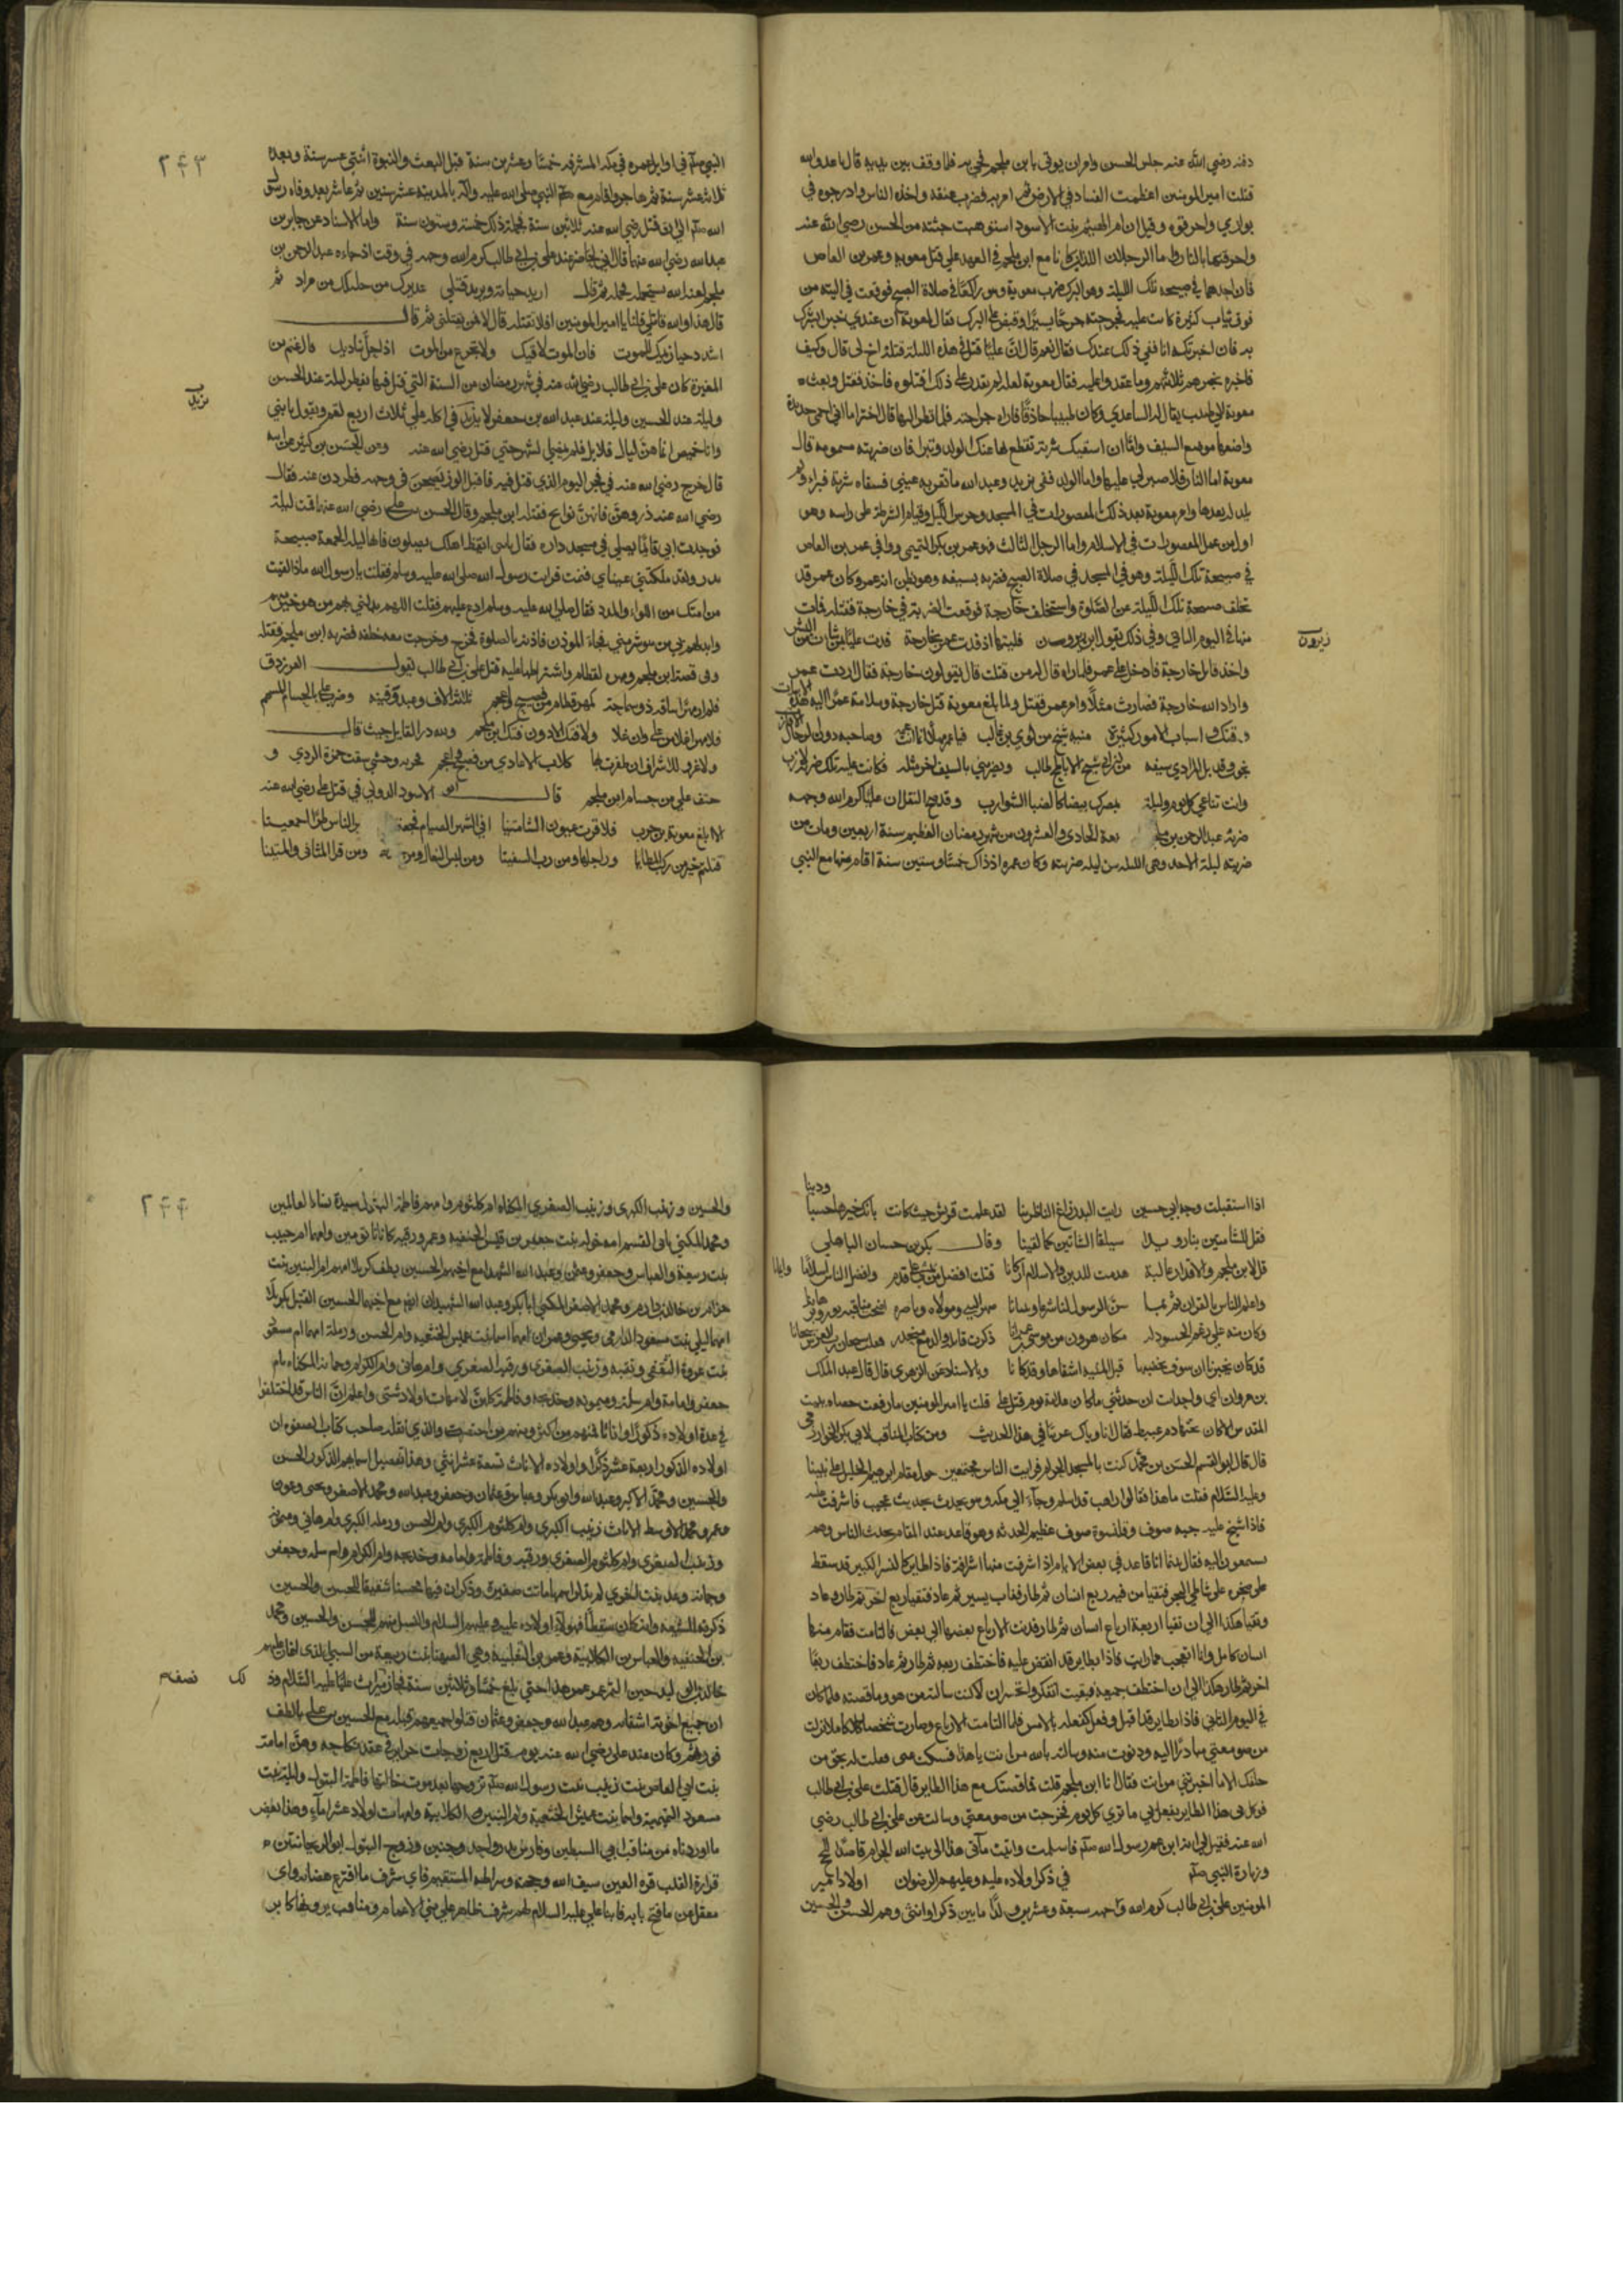 دفنه رضي الله عنه جلس الحسن وامر ان يوتى بابن ملجم فجي به فلما وقف بين يديه قال يا عدو الله
قتلت امير المومنين اعظمت الفساد في الارض ثم امر به فضرب عنقه واخذه الناس وادرجوه في
بواري واحرقوه وقيل ان ام الهيثم بنت الاسود استوهبت جثته من الحسن رضي الله عنه
واحرقتها بالنار واما الرجلان اللذان كانا مع ابن ملجم في العهد على قتل معوية وعمرو بن العاص
فان احدهما في صبيحة تلك الليلة وهو البرك ضرب معوية وهو راكعا في صلاة الصبح فوقعت في اليته من
فوق ثياب كثيرة كانت عليه فجرحته جرحا يسيرا وقبض على البرك فقال لمعوية ان عندي خبرا يسرك
به فان اخبرتك به انا فعي ذلك عندك فقال نعم قال ان عليا قتل في هذه الليلة قتله اخ لي قال وكيف
فاخبره بخبرهم ثلاثتهم وما عقدوا عليه فقال معوية لعله لم يقدر على ذلك اقتلوه فاخذ فقتل وبعث
معوية الى طبيب يقال له الساعدي وكان طبيبا حاذقا فاراه جراحته فلما نظر اليها قال اختر اما اني احمي حديدة
واضعها موضع السيف واما ان اسقيك شربة تقطع بها عنك الولد وتبرا فان ضربته مسمومة قال
معوية اما النار فلا صبر لي عليها واما الولد ففي يزيد وعبد الله ما تقر به عيني فسقاه شربة فبراء ولم
يلد له بعدها وامر معوية بعد ذلك بالمقصورات في المسجد وحرس الليل وقيام الشرطة على راسه وهو
اول من عمل المقصورات في الاسلام واما الرجل الثالث فهو عمرو بن بكر التميمي وافى عمرو بن العاص
في صبيحة تلك الليلة وهو في المسجد في صلاة الصبح فضربه بسيفه وهو يظن انه عمرو وكان عمرو قد
تخلف صبيحة تلك الليلة عن الصلوة واستخلف خارجة فوقعت الضربة في خارجة فقتله فمات
منها في اليوم الثاني وفي ذلك يقول ابن زيدون فليتها اذ فدت عمرا بخارجة فدت عليا بمن شات من البشر
زيدون
واخذ قاتل خارجة فادخل على عمرو فلما راه قال له من قتلت قال يقولون خارجة فقال اردت عمرا
واراد الله خارجة فصارت مثلا وامر عمرو فقتل ولما بلغ معوية قتل خارجة وسلامة عمرو كتب اليه هذه الابيات
وقتك واسباب الامور كثيرة منية شيخ من لوي بن غالب فيا عمرو مهلا انما انت عمه وصاحبه دون الرجال الاقارب
نجوت وقد بل المرادي سيفه من ابن ابي شيخ الاباطح طالب ويضربني بالسيف اخر مثله فكانت عليه تلك ضربة لازب
وانت تناغي كل يوم وليلة بمصرك بيضا كالظبا الشوارب وقد صح النقل ان عليا كرم الله وجهه
ضربه عبد الرحمن بن ملجم ليلة الحادي والعشرون من شهر رمضان العظيم سنة اربعين ومات من
ضربته ليلة الاحد وهي الليلة من ليلة ضربته وكان عمره اذ ذاك خمسا وستين سنة اقام منها مع النبي
٢۴٣
النبي صلعم في اوايل عمره في مكة المشرفة خمسا وعشرين سنة قبل البعث والنبوة اثنتي عشرسنة وبعدها
ثلاث عشر سنة ثم هاجر واقام مع النبي صلى الله عليه واله بالمدينة عشر سنين ثم عاش بعد وفاة رسول
الله صلعم الى ان قتل رضي الله عنه ثلاثين سنة فجملة ذلك خمسة وستون سنة واما الاسناد عن جابر بن
عبد الله رضي الله عنهما قال اني لحاضر عند علي بن ابي طالب كرم الله وجهه في وقت اذ جاءه عبد الرحمن بن
ملجم لعنه الله يستحمله فحمله ثم قال اريد حياته ويريد قتلي عذيرك من خليلك من مراد ثم
قال هذا والله قاتلي قلنا يا امير المومنين افلا نقتله قال لا فمن يقتلني ثم قال
اشدد حيازيمك للموت فان الموت لاقيك ولا تجزع من الموت اذا حل بناديك قال غنم بن
المغيرة كان علي بن ابي طالب رضي الله عنه في شهر رمضان من السنة التي قتل فيها يفطر ليلة عند الحسن
وليلة عند الحسين وليلة عند عبد الله بن جعفر لا يزيد في اكله على ثلاث اربع لقم ويقول يا بني
يزيد
وانا خميص انما هن ليال قلايل فلم يمض الشهر حتى قتل رضي الله عنه وعن الحسن بن كثير عن ابيه
قال خرج رضي الله عنه في فجر اليوم الذي قتل فيه فاقبل الوز يصحن في وجهه فطردن عنه فقال
رضي الله عنه ذروهن فانهن نوايح فقتله ابن ملجم وقال الحسن بن علي رضي الله عنهما قمت ليلة
فوجدت ابي قائما يصلي في مسجد داره فقال يا بني ايقظ اهلك يصلون فانها ليلة الجمعة صبيحة
بدر ولقد ملكتني عيناي فنمت فرايت رسول الله صلى الله عليه وسلم فقلت يا رسول الله ماذا لقيت
من امتك من اللواء واللدد فقال صلى الله عليه وسلم ادع عليهم فقلت اللهم بدلني بهم من هو خير منهم
وابدلهم بي من هو شر مني فجاء الموذن فاذنه بالصلوة فخرج وخرجت معه خلفه فضربه ابن ملجم فقتله
وفي قصة ابن ملجم لقطام واشتراطها عليه قتل علي بن ابي طالب يقول الفرزدق
فلم ار مهرا ساقه ذو سماحة كمهر قطام من فصيح واعجم ثلثة الاف وعبد وقينة وضرب علي بالحسام المسمم
فلا مهر اغلا من علي وان غلا ولا فتك الا دون فتك ابن ملجم ولله در القايل حيث قال
ولا غرو للاشراف ان ظفرت بها كلاب الاعادي من فصيح واعجم فحربة وحشي سقت حمزة الردي و
حتف علي من حسام ابن ملجم قال ابو الاسود الدولي في قتل علي رضي الله عنه
الا ابلغ معوية بن حرب فلا قرت عيون الشامتينا افي الشهر الصيام فجعتمونا بخير الناس طرا اجمعينا
قتلتم خير من ركب المطايا ورحلها ومن ركب السفينا ومن لبس النعال ومن حذاها ومن قرا المثاني والمئينا
اذا استقبلت وجه ابي حسين رايت البدر راع الناظرينا لقد علمت قريش حيث كانت بانك خيرها حسبا ودينا
فقل للشامتين بنا رويدا سيلقا الشامتين كما لقينا وقال بكر بن حسان الباهلي
قل لابن ملجم والاقدار غالبة هدمت للدين والاسلام اركانا قتلت افضل من يمشي على قدم وافضل الناس اسلاما وايمانا
واعلم الناس بالقران ثم بما سن الرسول لنا شرعا وتبيانا صهر النبي ومولاه وناصره اضحت مناقبه نورا وبرهانا
وكان منه على رغم الحسود له مكان هرون من موسى بن عمرانا ذكرت قاتله والدمع منحدر فقلت سبحان رب العرش سبحانا
قد كان يخبرنا ان سوف يخضبها قبل المنية اشقاها وقد كانا وبالاسناد عن الزهري قال قال عبد الملك
بن مروان اي واحد انت ان حدثتني ما كان علامة يوم قتل علي قلت يا امير المومنين ما رفعت حصاة ببيت
المقدس الا كان تحتها دم عبيط فقال انا واياك غريبان في هذا الحديث ومن كتاب المناقب لابي بكر الخوارزمي
قال قال ابو القسم الحسن بن محمد كنت بالمسجد الحرام فرايت الناس مجتمعين حول مقام ابرهيم الخليل على نبينا
وعليه السلام فقلت ما هذا فقالوا راهب قد اسلم وجاء الى مكة وهو يحدث بحديث عجيب فاشرفت عليه
فاذا شيخ عليه جبة صوف وقلنسوة صوف عظيم الجثة وهو قاعد عند المقام يحدث الناس وهم
يسمعون اليه فقال بينما انا قاعد في بعض الايام اذ اشرفت منها اشرافة فاذا طاير كالنسر الكبير قد سقط
على صخرة على شاطي البحر فتقيا من فيه ربع انسان ثم طار فغاب يسير ثم عاد فتقيا ربع اخر ثم طار وعاد
وتقيا هكذا الى ان تقيا اربعة ارباع انسان ثم طار فدنت الارباع بعضها الى بعض فالتامت فقام منها
انسان كامل وانا اتعجب مما رايت فاذا بطاير قد انقض عليه فاختطف ربعه ثم طار ثم عاد فاختطف ربعا
اخر ثم طار هكذا الى ان اختطف جميعه فبقيت اتفكر واتحسر ان لا كنت سالته من هو وما قصته فلما كان
في اليوم الثاني فاذا بطاير قد اقبل وفعل كفعله بالامس فلما التامت الارباع وصارت شخصا كاملا نزلت
من صومعتي مبادرا اليه ودنوت منه وسالته بالله من انت يا هذا فسكت عني فقلت له بحق من
خلقك الا ما اخبرتني من انت فقال انا ابن ملجم قلت فما قصتك مع هذا الطاير قال قتلت علي بن ابي طالب
فوكل بي هذا الطاير يفعل بي ما تري كل يوم فخرجت من صومعتي وسالت عن علي بن ابي طالب رضي
الله عنه فقيل لي انه ابن عم رسول الله صلعم فاسلمت واتيت الى بيت الله الحرام قاصدا للحج
وزيارة النبي صلعم في ذكر اولاده عليه وعليهم الرضوان اولاد امير
المومنين علي بن ابي طالب كرم الله وجهه سبعة وعشرين ولدا ما بين ذكر وانثى وهم الحسن والحسين
٢۴۴
والحسين وزينب الكبرى وزينب الصغرى المكناه ام كلثوم وامهم فاطمة البتول سيدة نساء العالمين
ومحمد المكنى بابي القسم امه خولة بنت جعفر بن قيس الحنفيه وعمر ورقيه كانا توءمين وامهما ام حبيب
بنت ربيعة والعباس وجعفر وعثمن وعبد الله الشهداء مع اخيهم الحسين بطف كربلا امهم ام البنين بنت
حزام بن خالد بن دارم ومحمد الاصغر المكنى ابا بكر وعبد الله الشهيدان ايضا مع اخيهما الحسين القتيل بكربلا
امهما ليلى بنت مسعود الدارمي ويحيى وعون امهما اسما بنت عميس الخثعميه وام الحسن ورملة امهما ام مسعود
بنت عروة الثقفي ونفيسه وزينب الصغرى ورقيه الصغرى وام هاني وام الكرام وجمانه المكناه بام
جعفر وامامة وام سلمة وميمونه وخديجه وفاطمة كلهن لامهات اولاد شتى واعلم ان الناس قد اختلفوا
في عدة اولاده ذكورا واناثا فمنهم من اكثر ومنهم من اختصر والذي نقله صاحب كتاب الصفوة ان
اولاده الذكور اربعة عشر ذكرا واولاده الاناث تسعة عشر انثى وهذا تفصيل اسمايهم الذكور الحسن
والحسين ومحمد الاكبر وعبد الله وابو بكر وعباس وعثمان وجعفر وعبد الله ومحمد الاصغر ويحيى وعون
وعمر ومحمد الاوسط الاناث زينب الكبرى وام كلثوم الكبرى وام الحسن ورملة الكبرى وام هاني وميمونة
وزينب الصغرى وام كلثوم الصغرى ورقيه وفاطمة وامامه وخديجه وام الكرام وام سلمه وجعفر
وجمانه وعد بنت اخرى لم يذكر اسمها ماتت صغيرة وذكر ان فيها محسنا شقيقا للحسن والحسين
ذكرته الشيعه وانه كان سقطا فهولاء اولاده عليه وعليهم السلام والنسل منهم للحسن والحسين ومحمد
بن الحنفيه والعباس بن الكلابية وعمر بن التغلبية وهي الصهبا بنت ربيعة من السبي الذي اغار عليهم
خالد بن الوليد حين التمر وعمر عمر هذا حتى بلغ خمسا وثلاثين سنة فحاز ميراث علي عليه السلام وذلك
نصفه
ان جميع اخوته اشقاوه وهم عبد الله وجعفر وعثمان قتلوا جميعهم قبله مع الحسين بن علي بالطف
فورثهم وكان عند علي رضي الله عنه يوم قتل اربع زوجات حراير في عقد نكاحه وهن امامة
بنت ابي العاص بنت زينب بنت رسول الله صلعم تزوجها بعد موت خالتها فاطمة البتول وليلى بنت
مسعود التميمية واسما بنت عميس الخثعمية وام البنين الكلابية وامهات اولاد عشر اماء وهذا بعض
ما اوردناه من مناقب ابي السبطين وفارس بدر واحد وحنين وزوج البتول ابو الريحانتين
قرارة القلب قرة العين سيف الله وحجته وصراطه المستقيم فاي شرف ما افترع هضابه واي
معقل عز ما فتح بابه فابنا علي عليه السلام لهم شرف ظاهر على بني الاعمام ومناقب يرويها كابر